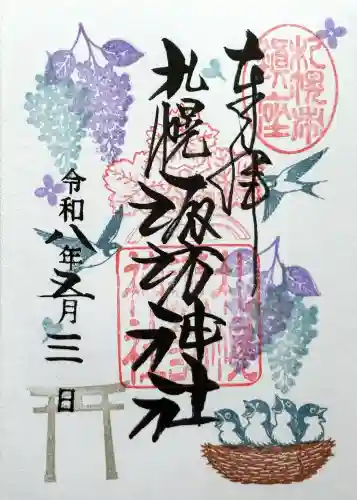 奉拝
札幌市
鎮座
札幌諏訪神社
令和八年五月三日